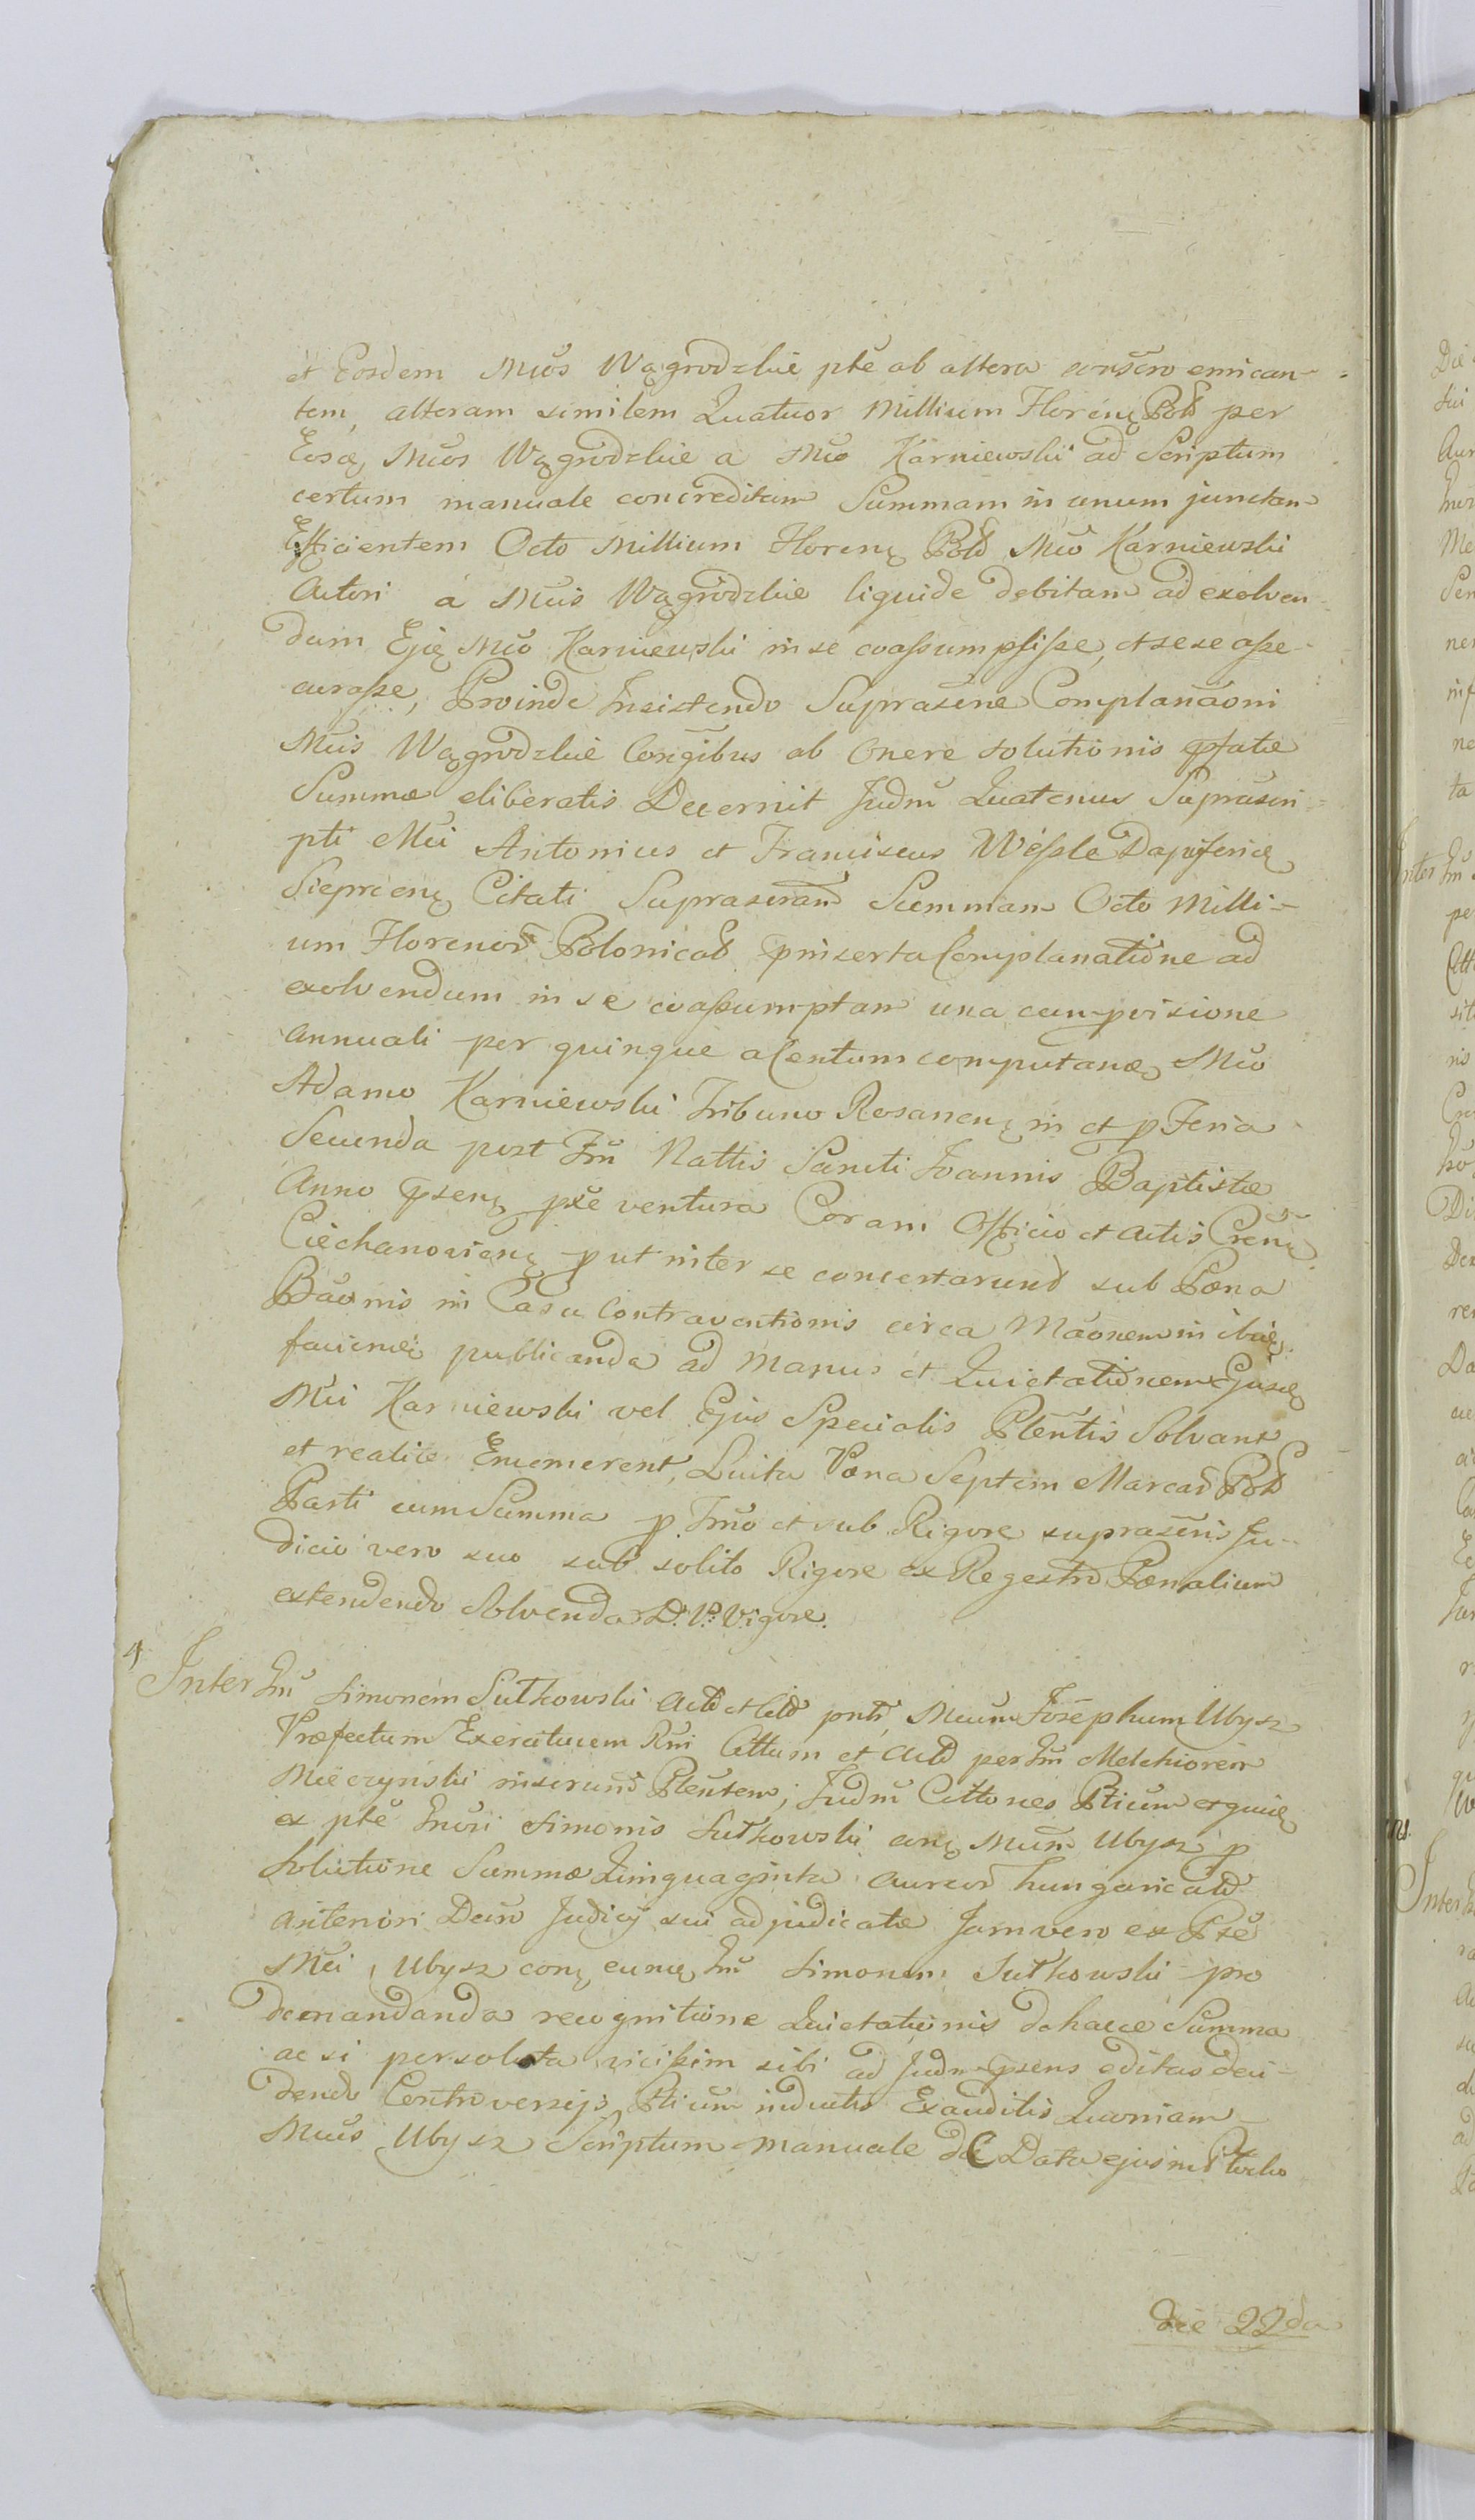 et Eosdem Mŭos Wągrodzkie ptĕ ab altera conscro emican-
tem, alteram similem Quatuor Millium Florenų Pold per
Eosdę Mŭos Wągrodzkie a Mŭo Karniewski ad Scriptum
certum manuale concreditam Summam in unum junctam
Efficientem Octo Millium Florenų Pold Mŭo Karniewski
Actori á Mŭis Wągrodzkie liquide debitam ad exolven-
dum Ejų Mŭo Karniewski in se coassumpsisse, et sese asse-
curasse, Proinde Insistendo Suprascne Complanaoni
Mŭis Wągrodzkie Conջibus ab Onere solutionis pfatæ
Summæ eliberatis Decernit Judm̃ Quatenus Suprascri-
pti Mŭi Antonius et Franciscus Wessle Dapiferię
Sieprcenų Citati Suprascram Summam Octo Milli-
um Florenor Polonical pinserta Complanatione ad
exolvendum in se coassumptam una cum pvisione
Annuali per quinque a Centum computandę Mŭo
Adamo Karniewski Tribuno Rosanenų in et p Feria
Secunda post Fm̃ Nattis Sancti Joannis Baptistæ
Anno pseną pxĕ ventura Coram Officio et Actis Cren̄ų
Ciechanovienų put inter se concertarund sub Pœna
Baonis in Casu Contraventionis circa Maonem in ibię
faciendę publicanda ad Manus et Quietationem Ejusdę
Mŭi Karniewski vel Ejus Specialis Plentis Solvant
et realiter Enumerent, Luita Pœna Septem Marcar Pold
Parti cum Summa p Tm̃o et sub Rigore suprascris Ju-
dicio vero suo sub solito Rigore ex Regestro Pœnalium
extendendo Solvenda D. P. Vigore.
4 Inter Gm̃ Simonem Sutkowski Acto et Citto pntĕ, Mŭum Josephum Ubysz
Præfectum Exercituum Rni Cittum et Acto per Gm̃ Melchiorem
Mieczynski inscrund Plentem; Judm̃ Cittones Ptium ex quię
ex ptĕ Gnosi Simonis Sutkowski conų Mŭm Ubysz p
Solutione Summæ Quinquaginta Aureor hungarical
anteriori Decro Judicij sui adjudicatæ Jam vero ex Ptĕ
Mŭi Ubysz conų eundę Gm̃ Simonem Sutkowski pro
demandanda recognitione Quietationis de hacce Summa
ac si persoluta vicissim sibi ad Judm̃ psens editas deci-
dendo Controversijs Ptium inductis Exauditis Quoniam
Mŭus Ubysz Scriptum Manuale de Data ejusmd
die 22da